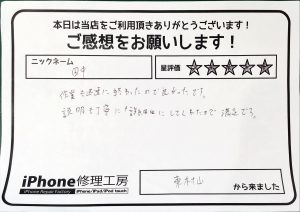 本日は当店をご利用頂きありがとうございます！
ご感想をお願いします！
ニックネーム
田中
星評価
★★★★★
作業も迅速に終わたので良かったです。
説明も丁寧に してくれたので 満足です。
iPhone修理工房
iPhone Repair Factory
iPhone/iPad/iPod touch
東村山
から来ました